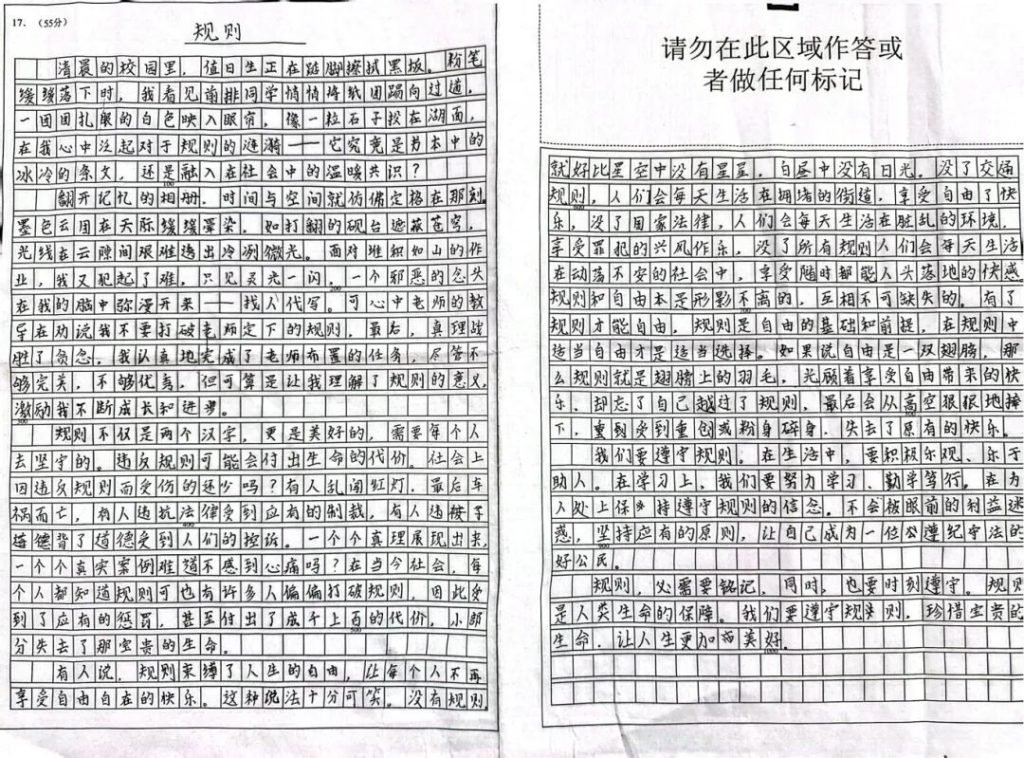 17. (55分)
规则
清晨的校园里,值日生正在踮脚擦拭黑板。粉笔
缓缓落下时,我看见前排同学悄悄将纸团踢向过道,
一团团扎眼的白色映入眼帘,像一粒石子投在湖面,
在我心中泛起对于规则的涟漪——它究竟是书本中的
冰冷的条文,还是融入在社会中的温暖共识?
翻开记忆的相册,时间与空间就仿佛定格在那刻。
墨色云团在天际缓缓晕染,如打翻的砚台遮蔽苍穹,
光线在云隙间艰难透出冷冽微光。面对堆积如山的作
业,我又犯起了难,只见灵光一闪,一个邪恶的念头
在我的脑中弥漫开来——找人代写。可心中老师的教
导在劝说我不要打破老师定下的规则,最后,真理战
胜了贪念,我认真地完成了老师布置的任务,尽管不
够完美,不够优秀,但可算是让我理解了规则的意义,
激励我不断成长和进步。
规则不仅是两个汉字,更是美好的,需要每个人
去坚守的。违反规则可能会付出生命的代价。社会上
因违反规则而受伤的还少吗?有人乱闯红灯,最后车
祸而亡,有人违抗法律受到应有的制裁,有人违
道德背了道德受到人们的控诉。一个个真理展现出来,
一个个真实案例难道不感到心痛吗?在当今社会,每
个人都知道规则可也有许多人偏偏打破规则,因此受
到了应有的惩罚,甚至付出了成千上百的代价,小部
分失去了那宝贵的生命。
有人说,规则束缚了人生的自由,让每个人不再
享受自由自在的快乐。这种说法十分可笑。没有规则
请勿在此区域作答或
者做任何标记
就好比星空中没有星星,白昼中没有日光。没了交通
规则,人们会每天生活在拥堵的街道,享受自由了快
乐,没了国家法律,人们会每天生活在脏乱的环境,
享受罪犯的兴风作乐,没了所有规则人们会每天生活
在动荡不安的社会中,享受随时都能人头落地的快感
规则和自由本是形影不离的,互相不可缺失的。有了
规则才能自由,规则是自由的基础和前提,在规则中
适当自由才是适当选择。如果说自由是一双翅膀,那
么规则就是翅膀上的羽毛,光顾着享受自由带来的快
乐,却忘了自己越过了规则,最后会从高空狠狠地摔
下,重则受到重创或粉身碎身,失去了原有的快乐。
我们要遵守规则。在生活中,要积极乐观、乐于
助人。在学习上,我们要努力学习、勤学笃行。在为
人处上保持遵守规则的信念。不会被眼前的利益迷
惑,坚持应有的原则,让自己成为一位公遵纪守法的
好公民。
规则,必需要铭记,同时,也要时刻遵守。规则
是人类生命的保障。我们要遵守规则,珍惜宝贵的
生命,让人生更加美好。